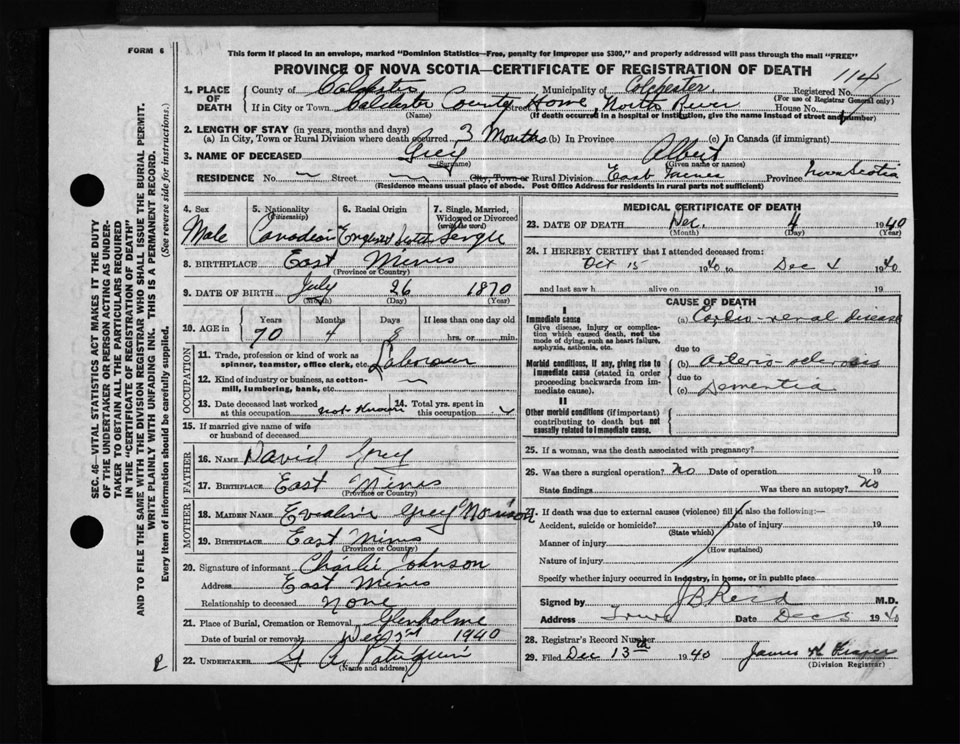 FORM 6
This form if placed in an envelope, marked "Dominion Statistics—Free, penalty for improper use $300," and properly addressed will pass through the mail "FREE"
PROVINCE OF NOVA SCOTIA—CERTIFICATE OF REGISTRATION OF DEATH
114
1. PLACE OF DEATH
County of Colchester Municipality of Colchester. Registered No.
(For use of Registrar General only)
If in City or Town Colchester County Street Home, North River House No.
(Name) (If death occurred in a hospital or institution, give the name instead of street and number)
2. LENGTH OF STAY (in years, months and days)
(a) In City, Town or Rural Division where death occurred 3 Months (b) In Province (c) In Canada (if immigrant)
3. NAME OF DECEASED Grey Albert
(Surname) (Given name or names)
RESIDENCE No. Street City, Town or Rural Division East Mines Province Nova Scotia
(Residence means usual place of abode. Post Office Address for residents in rural parts not sufficient)
4. Sex
Male
5. Nationality
Citizenship
Canadian
6. Racial Origin
English
7. Single, Married, Widowed or Divorced
(write the word)
Single
8. BIRTHPLACE East Mines
(Province or Country)
9. DATE OF BIRTH July 26 1870
(Month) (Day) (Year)
10. AGE in Years Months Days If less than one day old
70 4 8 hrs. or min.
OCCUPATION
11. Trade, profession or kind of work as spinner, teamster, office clerk, etc. Labourer
12. Kind of industry or business, as cotton-mill, lumbering, bank, etc.
13. Date deceased last worked at this occupation not known
14. Total yrs. spent in this occupation
15. If married give name of wife or husband of deceased
FATHER
16. NAME David Grey
17. BIRTHPLACE East Mines
(Province or Country)
MOTHER
18. MAIDEN NAME Grey
19. BIRTHPLACE East Mines
(Province or Country)
20. Signature of informant Charlie Johnson
Address East Mines
Relationship to deceased None
21. Place of Burial, Cremation or Removal Glenholme
Date of burial or removal 1940
22. UNDERTAKER
(Name and address)
MEDICAL CERTIFICATE OF DEATH
23. DATE OF DEATH Dec. 4 1940
(Month) (Day) (Year)
24. I HEREBY CERTIFY that I attended deceased from:
Oct 15 1940 to Dec 4 1940
and last saw h alive on 19
CAUSE OF DEATH
I
Immediate cause
Give disease, injury or complication which caused death, not the mode of dying, such as heart failure, asphyxia, asthenia, etc.
(a) Cardio-renal Disease
due to
Morbid conditions, if any, giving rise to immediate cause (stated in order proceeding backwards from immediate cause).
(b) Arterio-sclerosis
due to
(c) Dementia
II
Other morbid conditions (if important) contributing to death but not causally related to immediate cause.
25. If a woman, was the death associated with pregnancy?
26. Was there a surgical operation? No Date of operation 19
State findings Was there an autopsy? No
27. If death was due to external causes (violence) fill in also the following:—
Accident, suicide or homicide? Date of injury 19
(State which)
Manner of injury
(How sustained)
Nature of injury
Specify whether injury occurred in industry, in home, or in public place
Signed by J B Reid M.D.
Address Truro Date Dec 5 1940
28. Registrar's Record Number
29. Filed Dec 13th 1940 James
(Division Registrar)
SEC. 46—VITAL STATISTICS ACT MAKES IT THE DUTY
OF THE UNDERTAKER OR PERSON ACTING AS UNDER-
TAKER TO OBTAIN ALL THE PARTICULARS REQUIRED
IN THE "CERTIFICATE OF REGISTRATION OF DEATH"
AND TO FILE THE SAME WITH THE DIVISION REGISTRAR WHO SHALL ISSUE THE BURIAL PERMIT.
WRITE PLAINLY WITH UNFADING INK. THIS IS A PERMANENT RECORD.
Every item of Information should be carefully supplied. (See reverse side for instructions.)